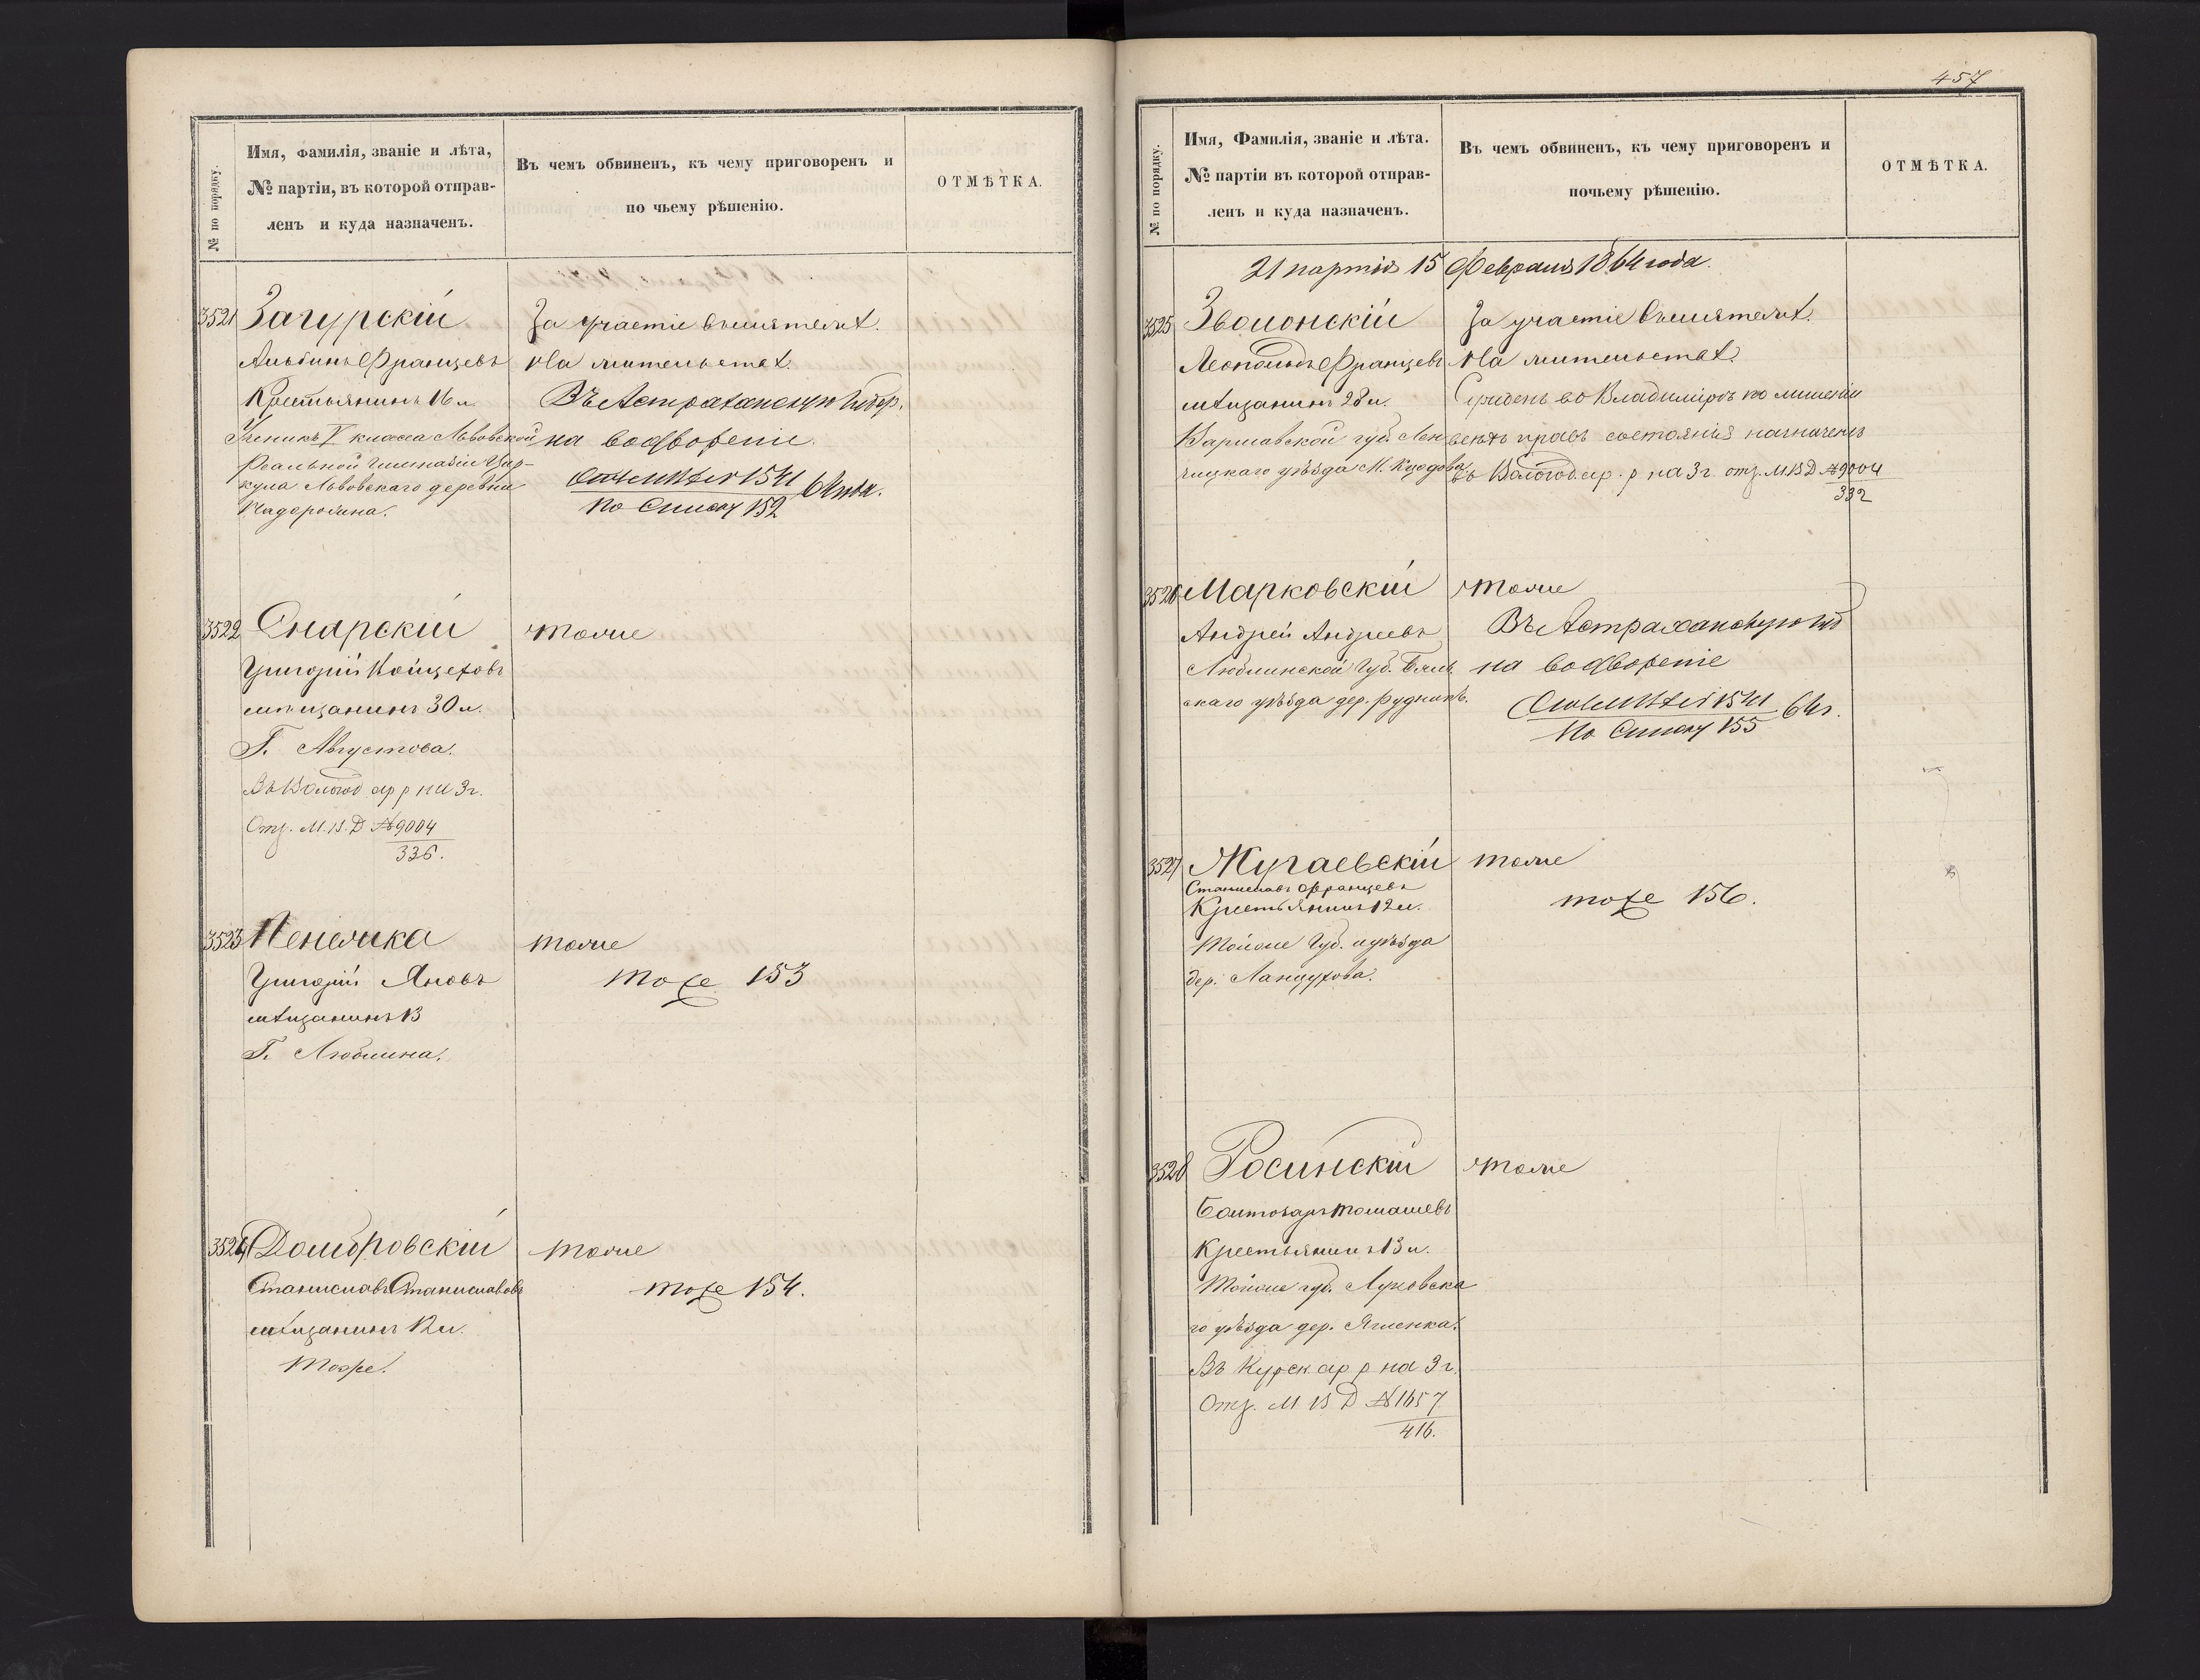 № по порядку.
Имя, фамилія, званіе и лѣта,
№ партіи, въ которой отправ-
ленъ и куда назначенъ.
Въ чемъ обвиненъ, къ чему приговоренъ и
по чьему рѣшенію.
ОТМѢТКА.
3521 Загурскій
Альбинъ Францевъ
Крестьянинъ 16 л.
Ученикъ V класса Львовской
Реальной Гимназіи Цир-
кула Львовскаго деревни
За участіе въ мятежѣ.
На жительство.
Въ Астраханскую Губер.
на водвореніе.
1541
По Списку 152
3522 Снарскій
Григорій Войцеховъ
мѣщанинъ 30 л.
Г. Августова.
Въ Вологод ар р на 3 г.
Отз. М. В. Д №9004
336.
тоже
3523 Пенёнжка
Григорій Яновъ
мѣщанинъ 13
Г. Люблина.
тоже
тоже 153
3524 Домбровскій
Станиславъ Станиславовъ
мѣщанинъ 12 л.
Тоже.
тоже
тоже 154.
457
№ по порядку.
Имя, Фамилія, званіе и лѣта.
№ партіи въ которой отправ-
ленъ и куда назначенъ.
Въ чемъ обвиненъ, къ чему приговоренъ и
почьему рѣшенію.
ОТМѢТКА.
21 партія 15 Февраля 1864 года.
3525 Зволонскій
Леопольдъ Францевъ
мѣщанинъ 28 л.
Варшавской губ. Лен
чицкаго уѣзда М.
За участіе въ мятежѣ.
На жительство.
Сужденъ во Владимірѣ по лишеніи
всѣхъ правъ состоянія назначенъ
въ Вологод. ар. р на 3 г. отз. М В Д №9004
332
3526 Марковскій
Андрей Андреевъ
Люблинской Губ. Бяль
скаго уѣзда дер. Рудникъ.
тоже
Въ Астраханскую Губ
на водвореніе
1541
По Списку 155 64 г.
3527 Жугаевскій
Станиславъ Францевъ
Крестьянинъ 12 л.
Тойже Губ. и уѣзда
дер.
тоже
тоже 156.
3528 Росинскій
Балтозаръ Томашевъ
Крестьянинъ 13 л.
Тойже губ. Луковска
го уѣзда дер.
Въ Курск. ар р на 3 г.
Отз. М В Д №1657
416.
тоже